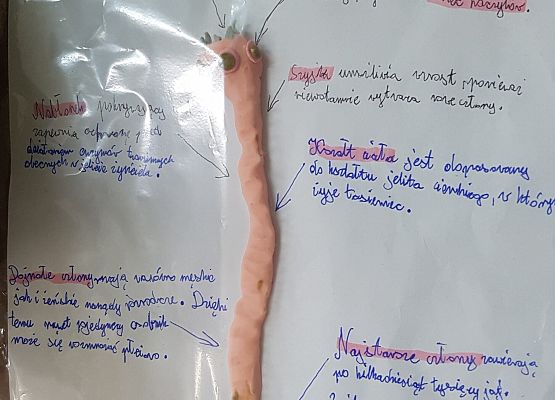 naczyniów.
Szyjka umiliwia wzrost, ponieważ
nieustannie wytwarza nowe człony.
Nabłonek pokrywający
zapewnia ochronę przed
działaniem enzymów trawiennych
obecnych w jelicie żywiciela.
Kształt ciała jest dopasowany
do kształtu jelita cienkiego, w którym
żyje tasiemiec.
Dojrzałe człony mają zarówno męskie
jak i żeńskie narządy rozrodcze. Dzięki
temu nawet pojedynczy osobnik
może się rozmnażać płciowo.
Najstarsze człony zawierają
po kilkadziesiąt tysięcy jaj.